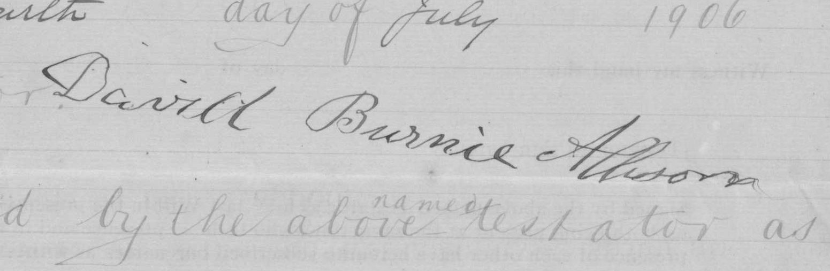 day of July 1906
David Burnie Allison
d by the above named testator as